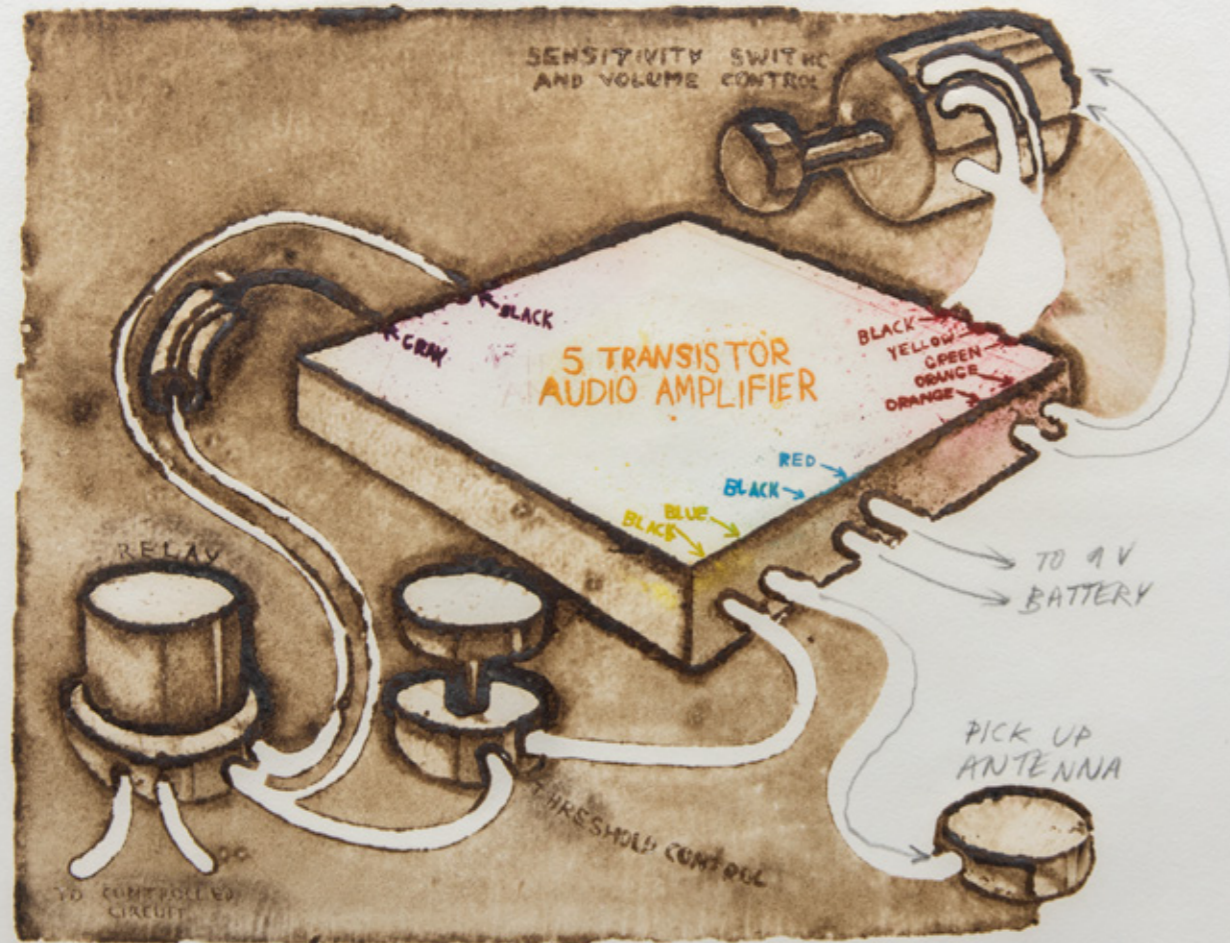 SENSITIVITY SWITHC
AND VOLUME CONTROL
BLACK
GRAY
5 TRANSISTOR
AUDIO AMPLIFIER
BLACK
YELLOW
GREEN
ORANGE
ORANGE
RED
BLACK
BLUE
BLACK
RELAY
TO 9 V
BATTERY
PICK UP
ANTENNA
THRESHOLD CONTROL
TO CONTROLLED
CIRCUIT